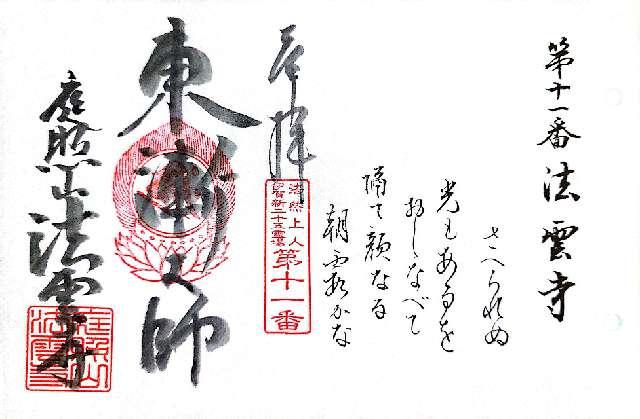 第十一番 法雲寺
さへられぬ
光もあるを
おしなべて
隔て顔なる
朝霞かな
奉拝
法然上人
第十一番
東漸大師
庭照山法雲寺